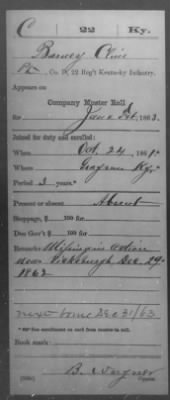 C 22 Ky.
Barney Cline
Pt., Co. D, 22 Reg't Kentucky Infantry.
Appears on
Company Muster Roll
for Jan & Feb, 1863.
Joined for duty and enrolled:
When Oct. 24, 1861.
Where Grayson Ky.
Period 3 years.*
Present or absent Absent
Stoppage, $ 100 for
Due Gov't $ 100 for
Remarks: Missing in action
near Vicksburgh Dec. 29
1862
Dec 31/63
Book mark:
(358) Copyist.